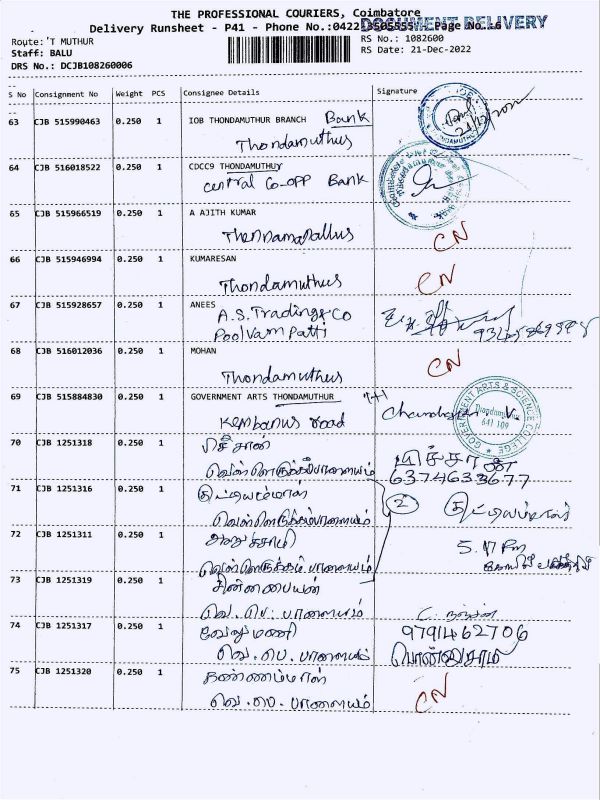 THE PROFESSIONAL COURIERS, Coimbatore
Delivery Runsheet - P41 - Phone No.:0422 3505555 Page No.:6
DOCUMENT DELIVERY
Route: 'T MUTHUR
RS No.: 1082600
Staff: BALU
RS Date: 21-Dec-2022
DRS No.: DCJB108260006
S No Consignment No Weight PCS Consignee Details Signature
63 CJB 515990463 0.250 1 IOB THONDAMUTHUR BRANCH Bank
Thondamuthur
64 CJB 516018522 0.250 1 CDCC9 THONDAMUTHUY
Central Co-opp Bank
65 CJB 515966519 0.250 1 A AJITH KUMAR
CN
66 CJB 515946994 0.250 1 KUMARESAN
Thondamuthur
CN
67 CJB 515928657 0.250 1 ANEES
A.S. Trading & Co
Poolvam Patti
68 CJB 516012036 0.250 1 MOHAN
Thondamuthur
CN
69 CJB 515884830 0.250 1 GOVERNMENT ARTS THONDAMUTHUR
road
GOVERNMENT ARTS & SCIENCE COLLEGE
Thondamuthur
641 109
70 CJB 1251318 0.250 1
6374633677
71 CJB 1251316 0.250 1
2
72 CJB 1251311 0.250 1
5.17 Pm
73 CJB 1251319 0.250 1 சின்னபையன்
வெ. பெ. பாளையம்
74 CJB 1251317 0.250 1 வேலுமணி 9791462706
வெ. பெ. பாளையம் பொன்னுசாமி
75 CJB 1251320 0.250 1 கண்ணம்மாள்
வெ. பெ. பாளையம் CN